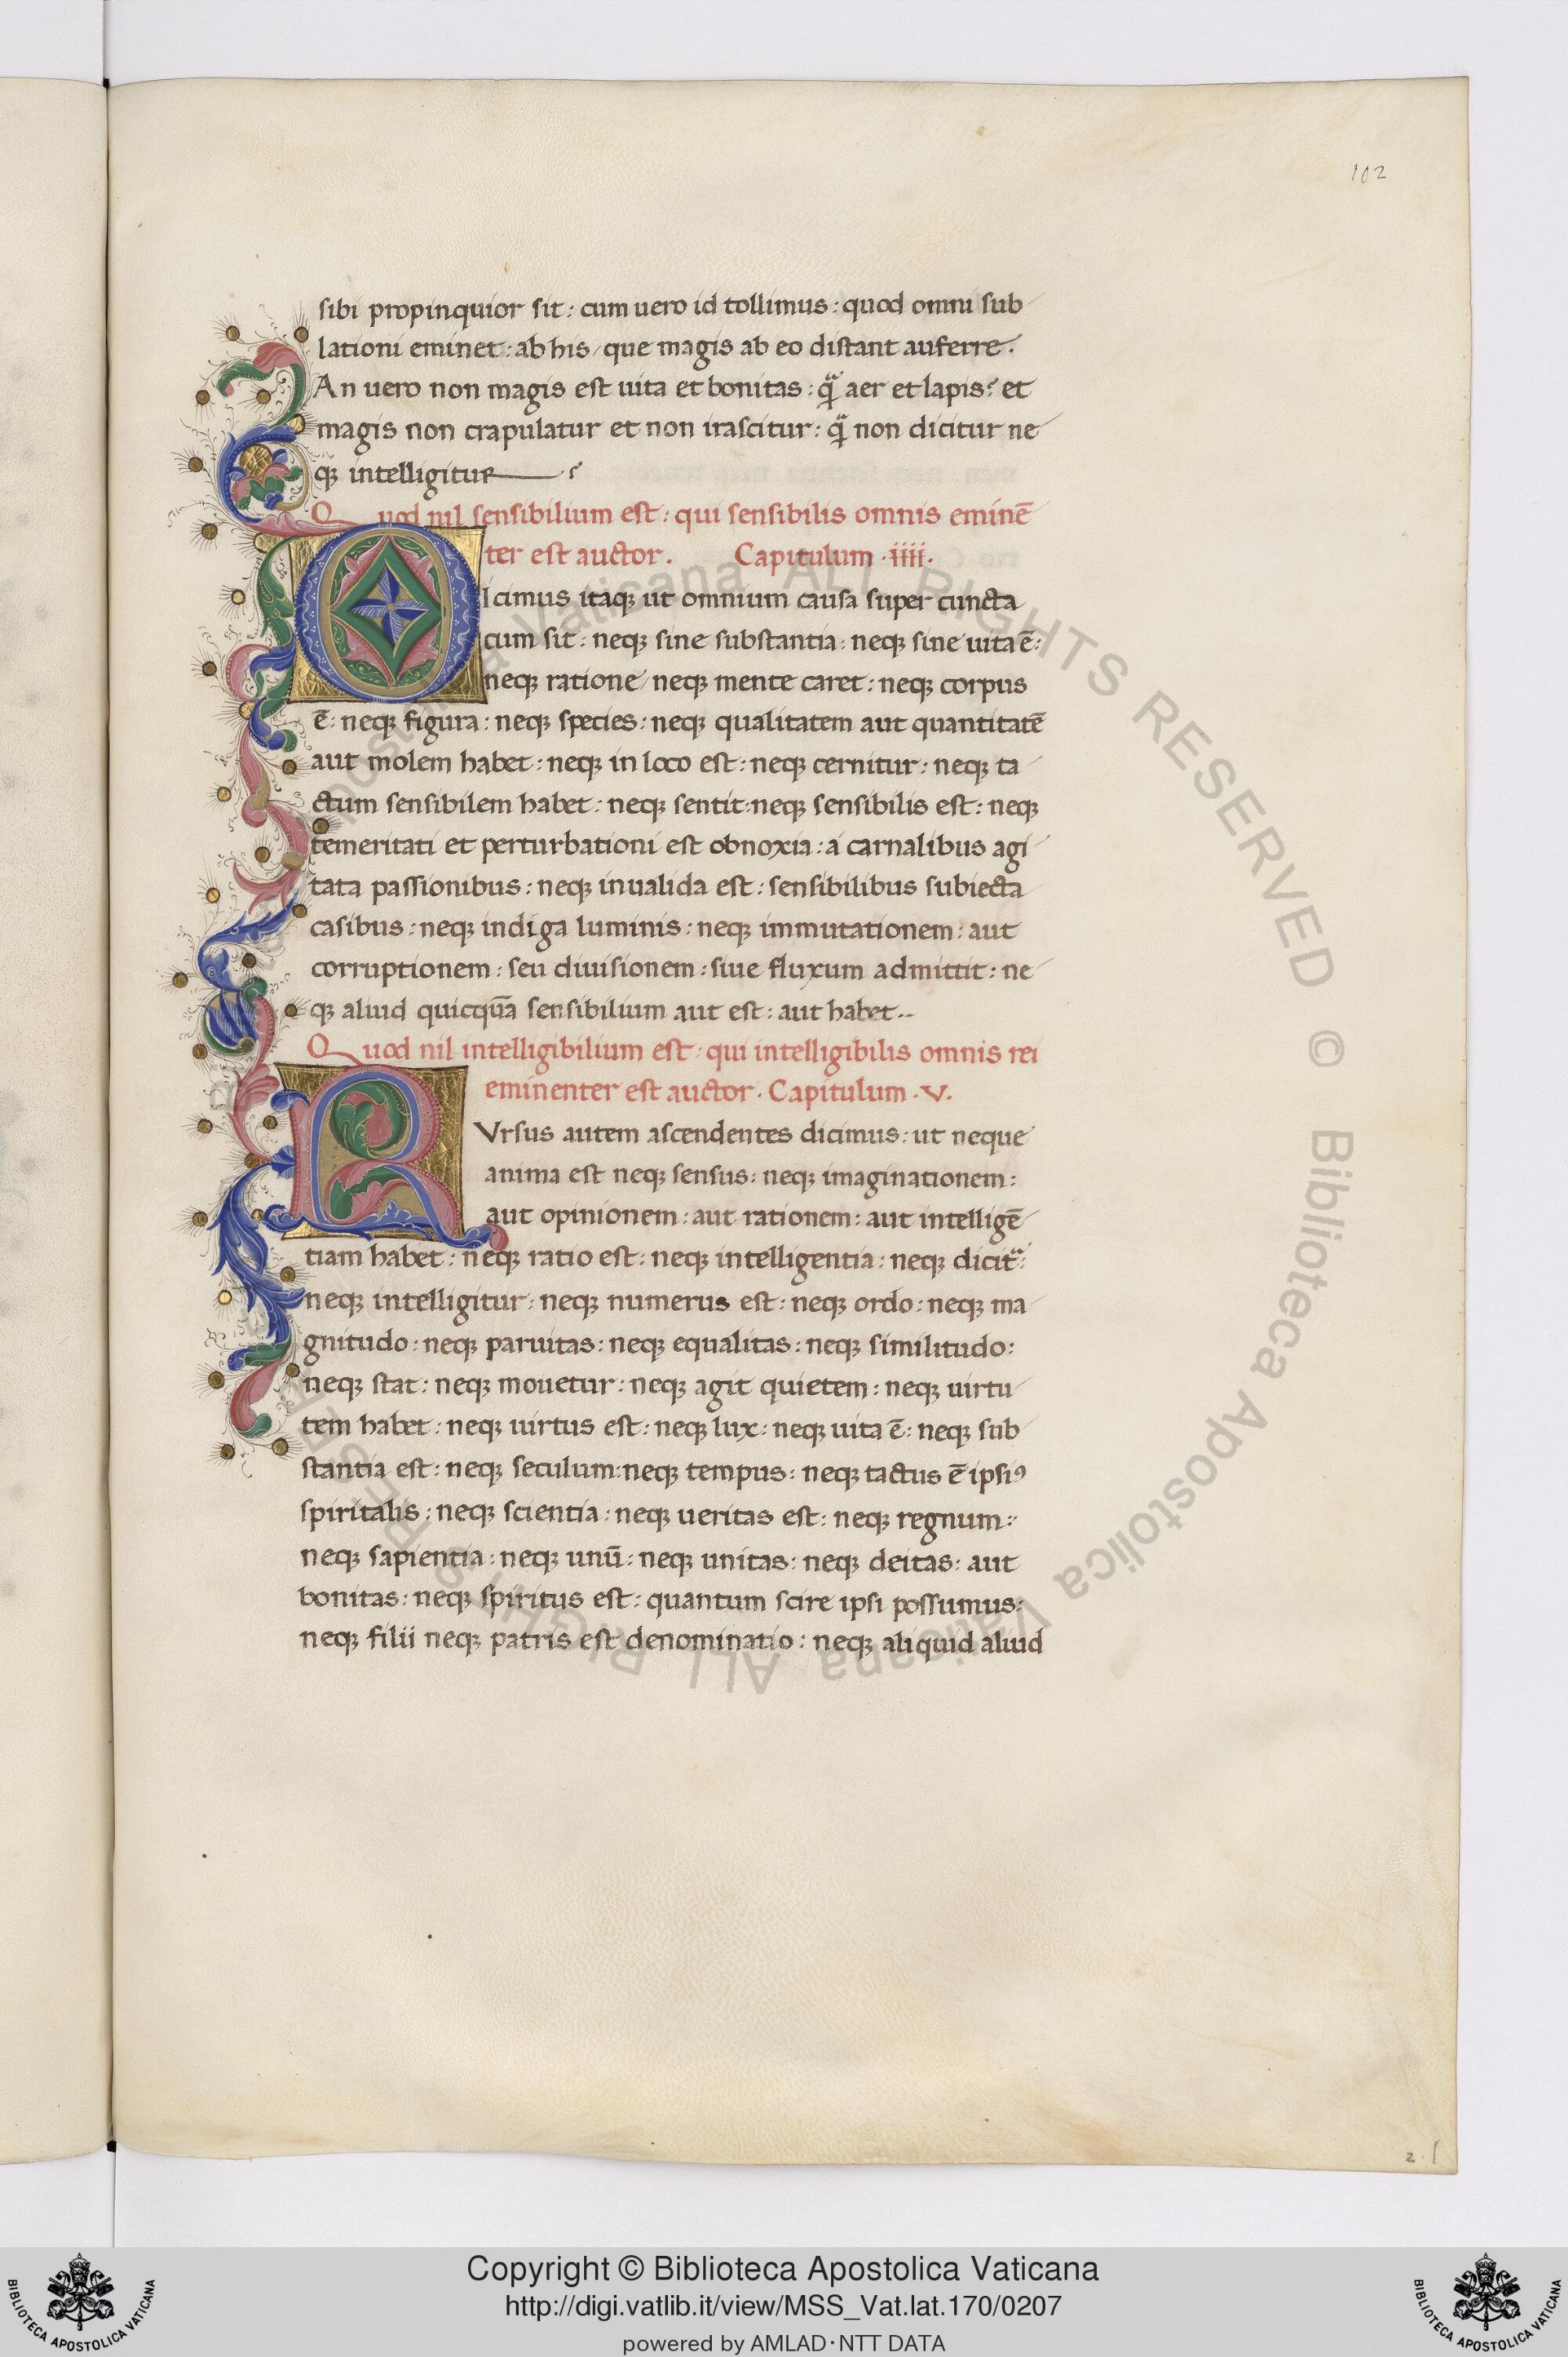 102
sibi propinquior sit: cum uero id tollimus: quod omni sub
lationi eminet: ab his/ que magis ab eo distant auferre.
An uero non magis est uita et bonitas: q̃ aer et lapis? et
magis non crapulatur et non irascitur: q̃ non dicitur ne
qꝫ intelligitur
Quod nil sensibilium est: qui sensibilis omnis eminē
ter est auctor. Capitulum .iiii.
Dicimus itaqꝫ ut omnium causa super cuncta
cum sit: neqꝫ sine substantia: neqꝫ sine uita ē:
neqꝫ ratione/ neqꝫ mente caret: neqꝫ corpus
ē: neqꝫ figura: neqꝫ species: neqꝫ qualitatem aut quantitatē
aut molem habet: neqꝫ in loco est: neqꝫ cernitur: neqꝫ ta
ctum sensibilem habet: neqꝫ sentit: neqꝫ sensibilis est: neqꝫ
temeritati et perturbationi est obnoxia: a carnalibus agi
tata passionibus: neqꝫ inualida est: sensibilibus subiecta
casibus: neqꝫ indiga luminis: neqꝫ immutationem: aut
corruptionem: seu diuisionem: siue fluxum admittit: ne
qꝫ aliud quicquā sensibilium aut est: aut habet..
Quod nil intelligibilium est: qui intelligibilis omnis rei
eminenter est auctor. Capitulum .V.
RVrsus autem ascendentes dicimus: ut neque
anima est neqꝫ sensus: neqꝫ imaginationem:
aut opinionem: aut rationem: aut intelligē
tiam habet: neqꝫ ratio est: neqꝫ intelligentia: neqꝫ dicit᷑:
neqꝫ intelligitur: neqꝫ numerus est: neqꝫ ordo: neqꝫ ma
gnitudo: neqꝫ paruitas: neqꝫ equalitas: neqꝫ similitudo:
neqꝫ stat: neqꝫ mouetur: neqꝫ agit quietem: neqꝫ uirtu
tem habet: neqꝫ uirtus est: neqꝫ lux: neqꝫ uita ē: neqꝫ sub
stantia est: neqꝫ seculum: neqꝫ tempus: neqꝫ tactus ē ipsiꝰ
spiritalis: neqꝫ scientia: neqꝫ ueritas est: neqꝫ regnum:
neqꝫ sapientia: neqꝫ unū: neqꝫ unitas: neqꝫ deitas: aut
bonitas: neqꝫ spiritus est: quantum scire ipsi possumus:
neqꝫ filii neqꝫ patris est denominatio: neqꝫ aliquid aliud
Copyright © Biblioteca Apostolica Vaticana
http://digi.vatlib.it/view/MSS_Vat.lat.170/0207
powered by AMLAD·NTT DATA
BIBLIOTECA APOSTOLICA VATICANA
BIBLIOTECA APOSTOLICA VATICANA